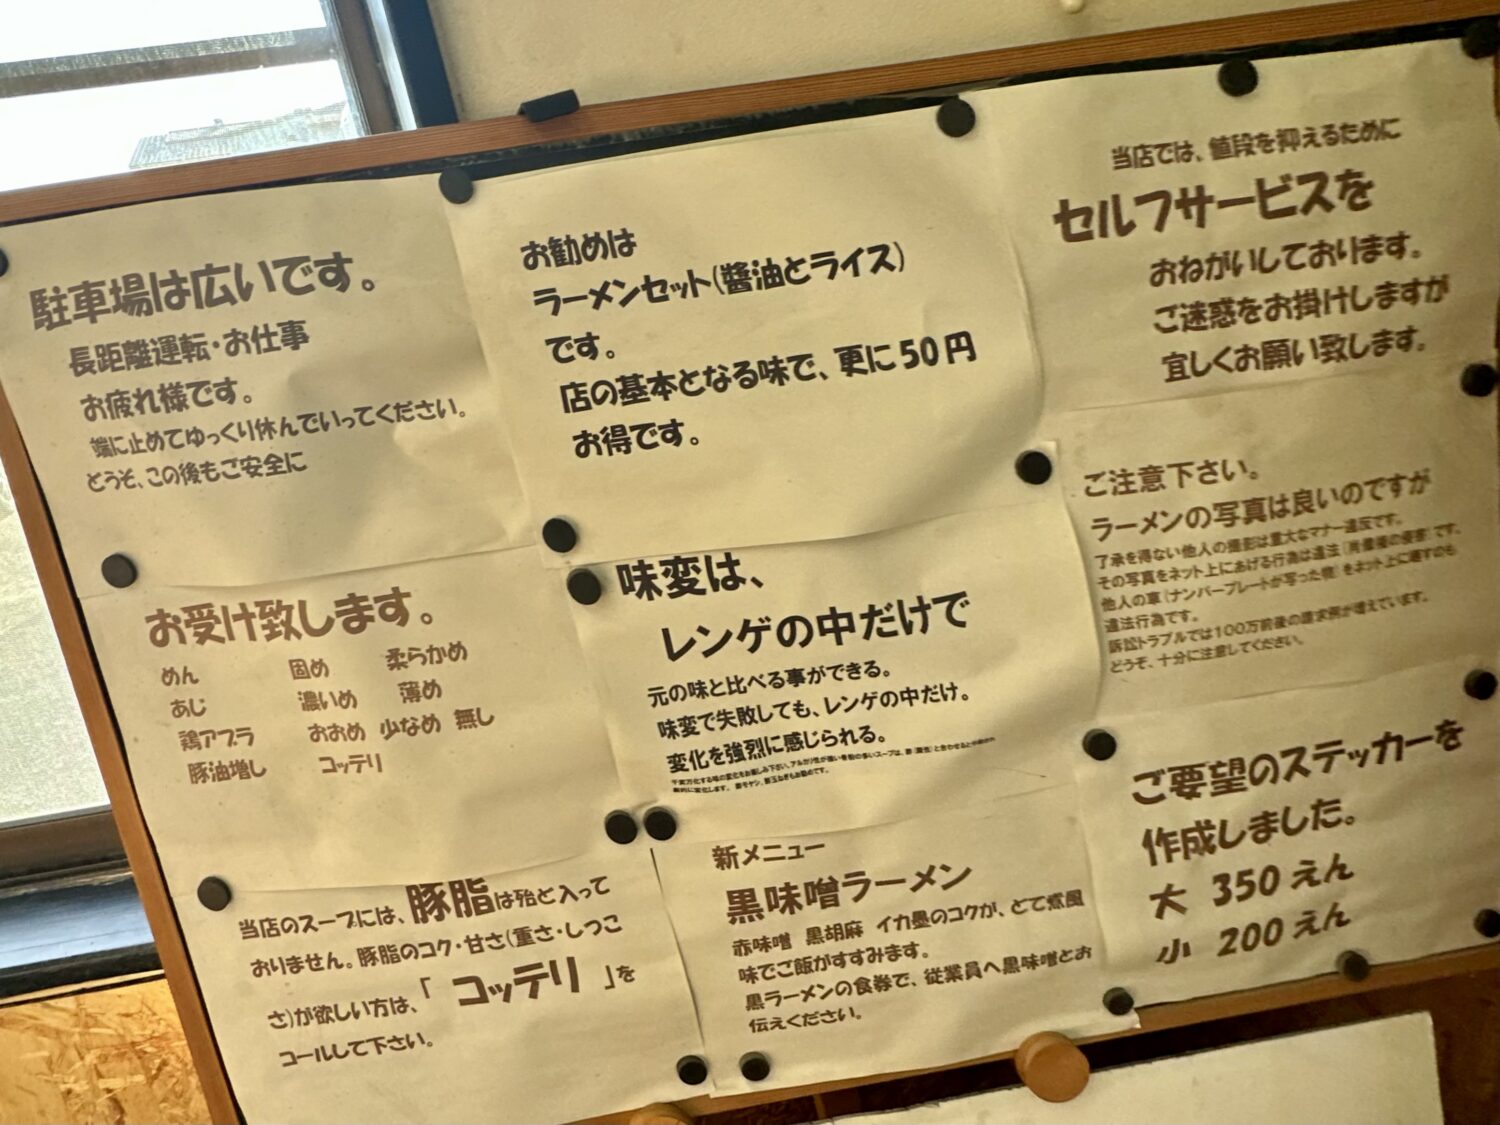 駐車場は広いです。
長距離運転・お仕事
お疲れ様です。
端に止めてゆっくり休んでいってください。
どうぞ、この後もご安全に
お勧めは
ラーメンセット(醬油とライス)
です。
店の基本となる味で、更に50円
お得です。
当店では、値段を抑えるために
セルフサービスを
おねがいしております。
ご迷惑をお掛けしますが
宜しくお願い致します。
お受け致します。
めん 固め 柔らかめ
あじ 濃いめ 薄め
鶏アブラ おおめ 少なめ 無し
豚油増し コッテリ
味変は、
レンゲの中だけで
元の味と比べる事ができる。
味変で失敗しても、レンゲの中だけ。
変化を強烈に感じられる。
ご注意下さい。
ラーメンの写真は良いのですが
了承を得ない他人の撮影は重大なマナー違反です。
その写真をネット上にあげる行為は違法(肖像権の侵害)です。
他人の車(ナンバープレートが写った物)をネット上に晒すのも
違法行為です。
訴訟トラブルでは100万前後の請求例が増えています。
どうぞ、十分に注意してください。
当店のスープには、豚脂は殆ど入って
おりません。豚脂のコク・甘さ(重さ・しつこ
さ)が欲しい方は、「 コッテリ 」を
コールして下さい。
新メニュー
黒味噌ラーメン
赤味噌 黒胡麻 イカ墨のコクが、どて煮風
味でご飯がすすみます。
黒ラーメンの食券で、従業員へ黒味噌とお
伝えください。
ご要望のステッカーを
作成しました。
大 350えん
小 200えん